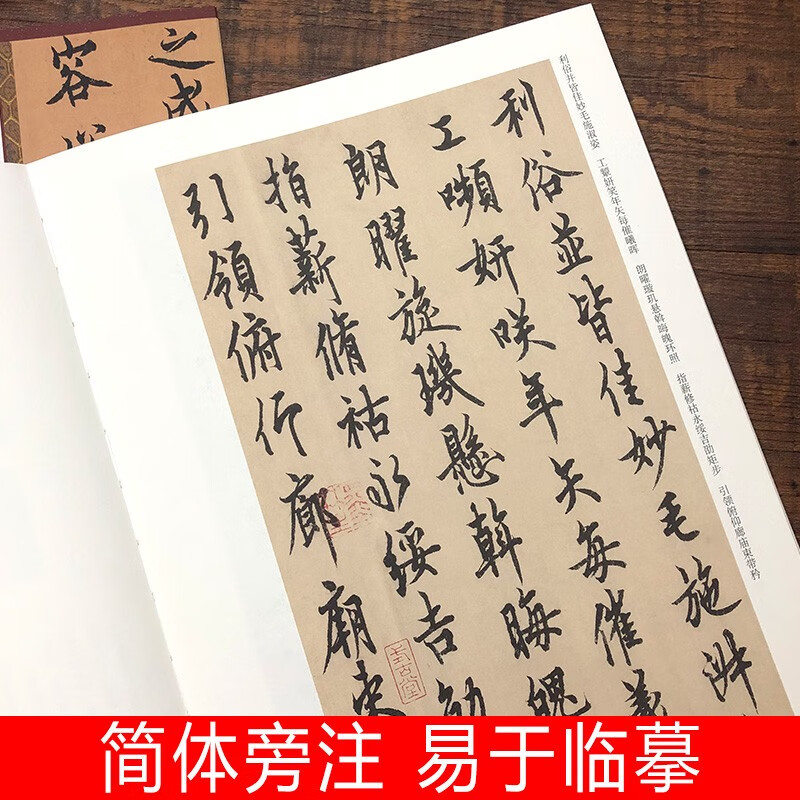 利俗并皆佳妙毛施淑姿 工颦妍笑年矢每催曦晖 朗曜璇玑悬斡晦魄环照 指薪修祜永绥吉劭矩步 引领俯仰廊庙束带矜
利俗並皆佳妙毛施淑
工嚬妍咲年矢每催羲
朗曜旋璣懸斡晦魄
指薪脩祜永綏吉劭
引領俯仰廊廟束
之盛
容
简体旁注 易于临摹